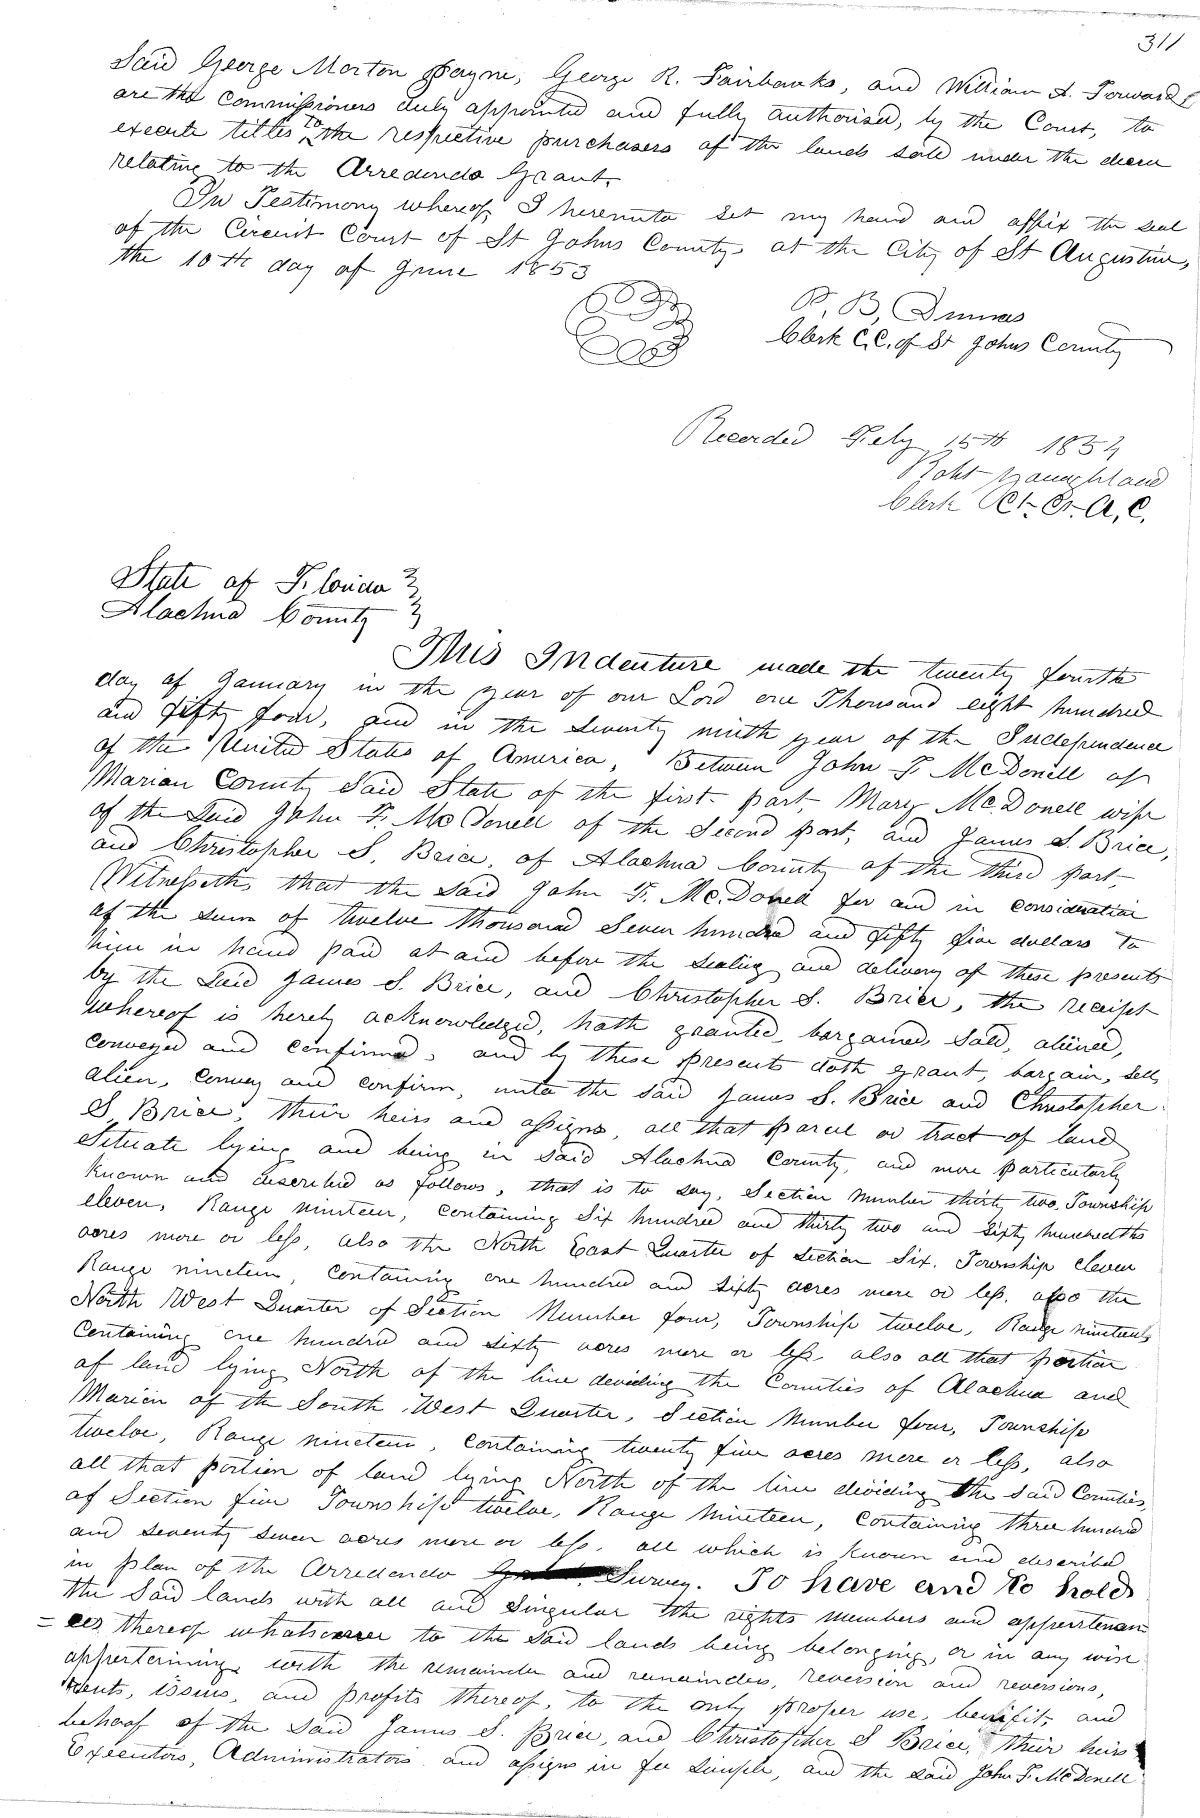 311
Said George Morton Payne, George R. Fairbanks, and William A. Forward
are the Commissioners duly appointed and fully authorised, by the Court, to
execute titles to the respective purchasers of the lands sold under the decree
relating to the Arredondo Grant.
In Testimony whereof, I hereunto set my hand and affix the seal
of the Circuit Court of St Johns County at the City of St Augustine,
the 10th day of June 1853
P. B. Dumas
Clerk C.C. of St Johns County
Recorded Feby 15th 1854
Robt
Clerk Ct. Ct. A. C.
State of Florida
Alachua County
This Indenture made the twenty fourth
day of January in the year of our Lord one Thousand eight hundred
and fifty four, and in the seventy ninth year of the Independence
of the United States of America, Between John F. McDonell of
Marion County Said State of the first part, Mary McDonell wife
of the Said John F. McDonell of the Second part, and James S. Brice,
and Christopher S. Brice, of Alachua County of the third part,
Witnesseth, that the said John F. McDonell for and in consideration
of the sum of twelve thousand Seven hundred and fifty five dollars to
him in hand paid at and before the sealing and delivery of these presents
by the Said James S. Brice, and Christopher S. Brice, the receipt
whereof is hereby acknowledged, hath granted, bargained, Sold, aliened,
conveyed and confirmed, and by these presents doth grant, bargain, sell,
alien, convey and confirm, unto the said James S. Brice and Christopher
S. Brice, their heirs and assigns, all that parcel or tract of land
Situate lying and being in said Alachua County, and more particularly
known and described as follows, that is to say, Section number thirty two, Township
eleven, Range nineteen, containing Six hundred and thirty two and sixty hundredths
acres more or less, also the North East Quarter of section Six, Township eleven
Range nineteen, containing one hundred and sixty acres more or less, also the
North West Quarter of Section Number four, Township twelve, Range nineteen,
Containing one hundred and sixty acres more or less, also all that portion
of land lying North of the line deviding the Counties of Alachua and
Marion of the South West Quarter, Section Number four, Township
twelve, Range nineteen, containing twenty five acres more or less, also
all that portion of land lying North of the line dividing the said Counties,
of Section five Township twelve, Range Nineteen, containing three hundred
and seventy seven acres more or less, all which is known and described
in plan of the Arredondo Survey. To have and to hold
the Said lands with all and singular the rights members and appurtenan
=ces thereof whatsoever to the said lands being belonging, or in any wise
appertaining with the remainder and remainders, reversion and reversions,
rents, issues, and profits thereof, to the only proper use, benefit, and
behoof of the said James S. Brice, and Christopher S Brice, their heirs
Executors, Administrators and assigns in fee simple, and the said John F. McDonell